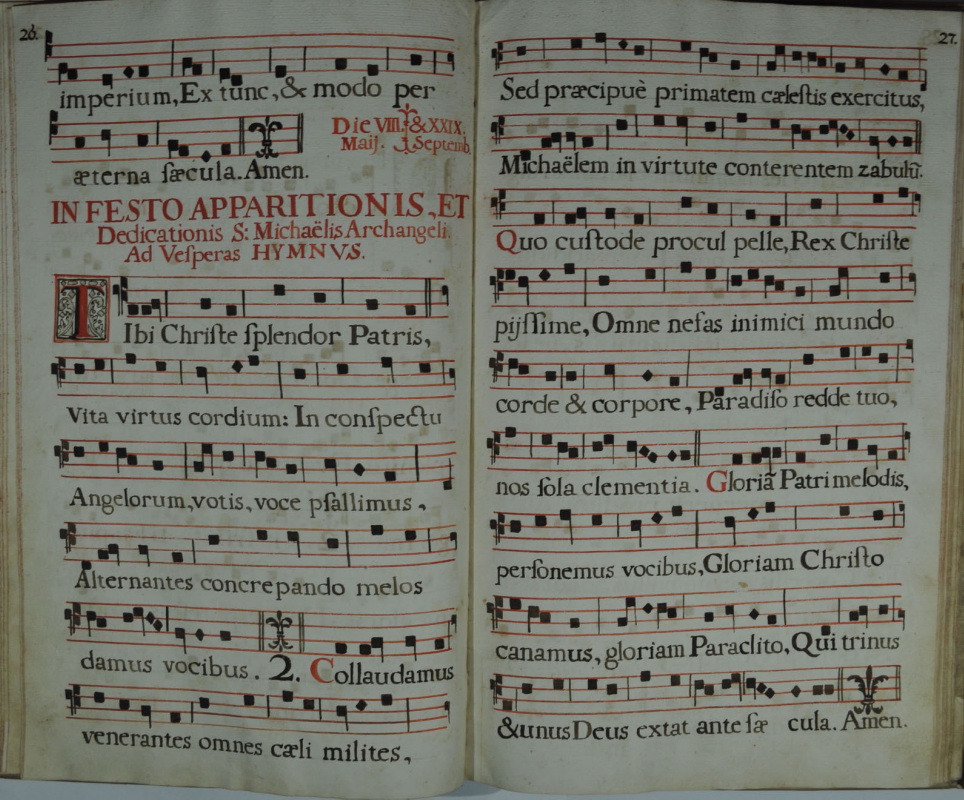 26.
imperium, Ex tunc, & modo per
æterna ſæcula. Amen.
Die VIII. & XXIX.
Maij. Septemb.
IN FESTO APPARITIONIS, ET
Dedicationis S: Michaëlis Archangeli.
Ad Veſperas HYMNVS.
TIbi Chriſte ſplendor Patris,
Vita virtus cordium: In conſpectu
Angelorum, votis, voce pſallimus,
Alternantes concrepando melos
damus vocibus. 2. Collaudamus
venerantes omnes cæli milites,
27.
Sed præcipuè primatem cæleſtis exercitus,
Michaëlem in virtute conterentem zabulũ.
Quo cuſtode procul pelle, Rex Chriſte
pijſſime, Omne nefas inimici mundo
corde & corpore, Paradiſo redde tuo,
nos ſola clementia. Gloriã Patri melodis,
perſonemus vocibus, Gloriam Chriſto
canamus, gloriam Paraclito, Qui trinus
& unus Deus extat ante ſæ cula. Amen.